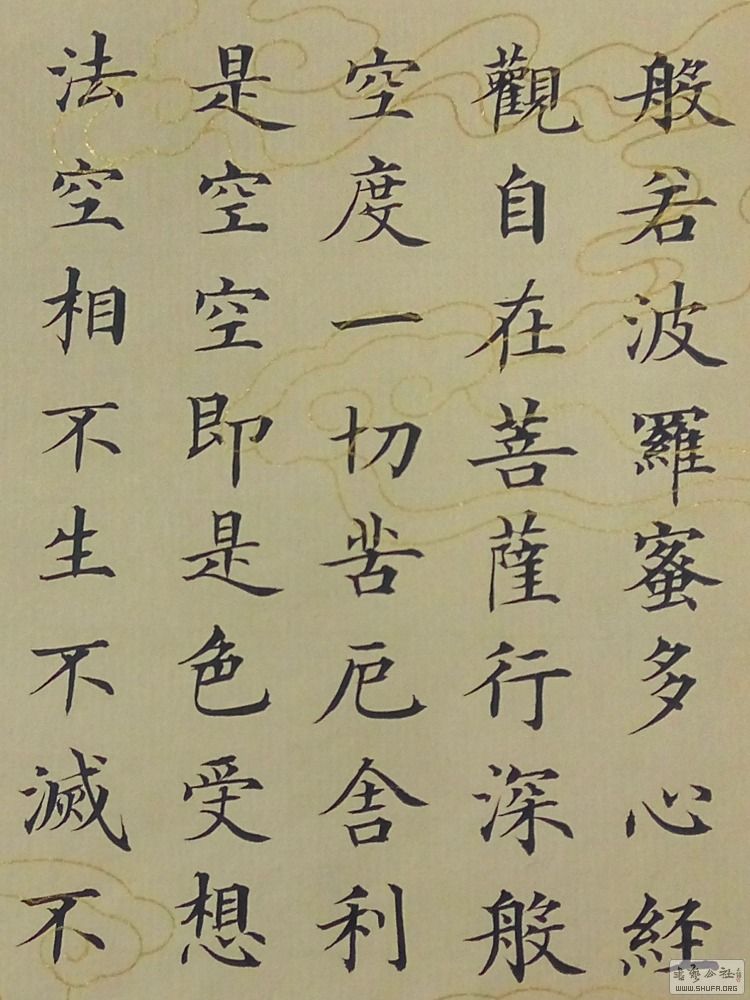 般若波羅蜜多心経
觀自在菩薩行深般
空度一切苦厄舍利
是空空即是色受想
法空相不生不滅不
WWW.SHUFA.ORG